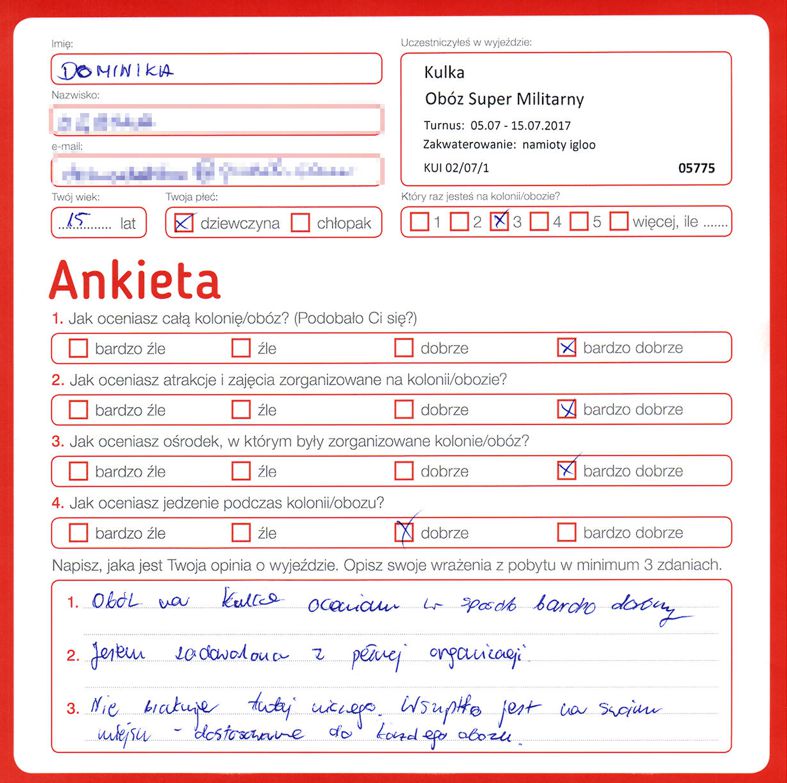 Imię:
DOMINIKA
Nazwisko:
e-mail:
Twój wiek:
15 lat
Twoja płeć:
dziewczyna chłopak
Uczestniczyłeś w wyjeździe:
Kulka
Obóz Super Militarny
Turnus: 05.07 - 15.07.2017
Zakwaterowanie: namioty igloo
KUI 02/07/1 05775
Który raz jesteś na kolonii/obozie?
1 2 3 4 5 więcej, ile .......
Ankieta
1. Jak oceniasz całą kolonię/obóz? (Podobało Ci się?)
bardzo źle źle dobrze bardzo dobrze
2. Jak oceniasz atrakcje i zajęcia zorganizowane na kolonii/obozie?
bardzo źle źle dobrze bardzo dobrze
3. Jak oceniasz ośrodek, w którym były zorganizowane kolonie/obóz?
bardzo źle źle dobrze bardzo dobrze
4. Jak oceniasz jedzenie podczas kolonii/obozu?
bardzo źle źle dobrze bardzo dobrze
Napisz, jaka jest Twoja opinia o wyjeździe. Opisz swoje wrażenia z pobytu w minimum 3 zdaniach.
1. Obóz na Kulce oceniam w sposób bardzo dobry
2. Jestem zadowolona z pełnej organizacji.
3. Nie brakuje tutaj niczego. Wszystko jest na swoim
miejscu - dostosowane do każdego obozu.